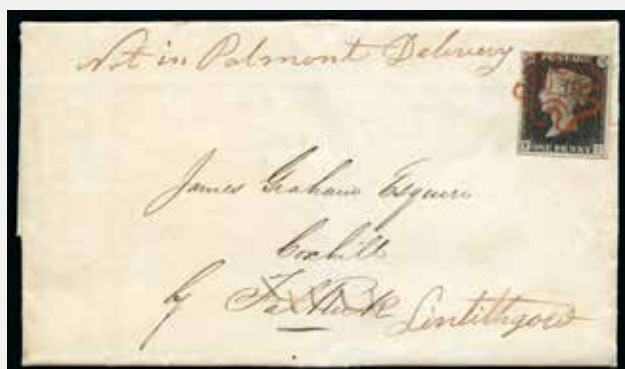 Not in Polmont Delivery
POSTAGE
ONE PENNY
James Graham Esquire
Coxhill
by Falkirk Linlithgow